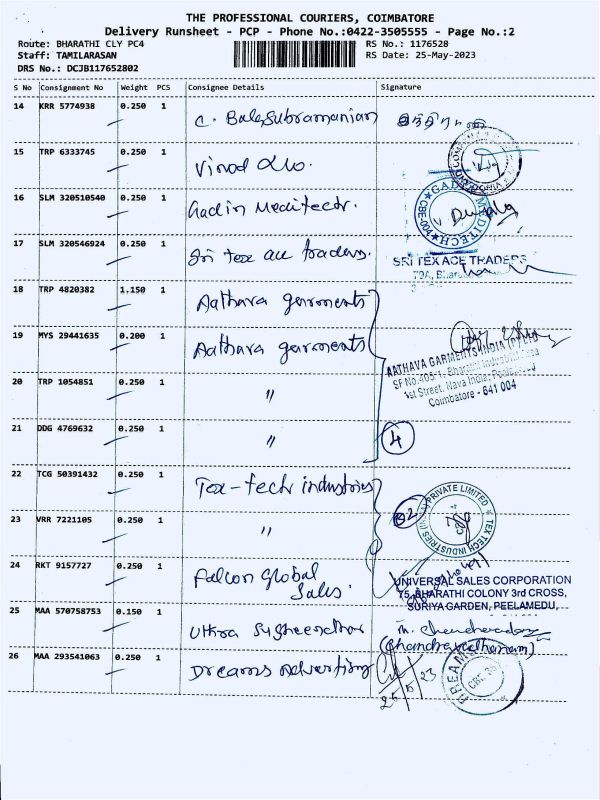 THE PROFESSIONAL COURIERS, COIMBATORE
Delivery Runsheet - PCP - Phone No.:0422-3505555 - Page No.:2
Route: BHARATHI CLY PC4 RS No.: 1176528
Staff: TAMILARASAN RS Date: 25-May-2023
DRS No.: DCJB117652802
S No Consignment No Weight PCS Consignee Details Signature
14 KRR 5774938 0.250 1 C. Balasubramanian
15 TRP 6333745 0.250 1 Vinod
16 SLM 320510540 0.250 1 Gadin Meditech.
GADIN MEDITECH CBE-004
17 SLM 320546924 0.250 1 Sri tex ace traders.
SRI TEX ACE TRADERS
79A, Bharathi
18 TRP 4820382 1.150 1 Aathava garments
19 MYS 29441635 0.200 1 Aathava garments
AATHAVA GARMENTS INDIA (P) LTD
SF No.405-1, Bharathi Industrial Area
1st Street, Nava India, Peelamedu
Coimbatore - 641 004
20 TRP 1054851 0.250 1 "
21 DDG 4769632 0.250 1 " 4
22 TCG 50391432 0.250 1 Tex-tech industries
02
TEX TECH INDUSTRIES (INDIA) PRIVATE LIMITED
23 VRR 7221105 0.250 1 "
24 RKT 9157727 0.250 1 Falcon Global Sales
UNIVERSAL SALES CORPORATION
75, BHARATHI COLONY 3rd CROSS,
SURIYA GARDEN, PEELAMEDU,
25 MAA 570758753 0.150 1 Uthra Sugheendhar
(Chandravathanam)
26 MAA 293541063 0.250 1 Dreams Advertising
25/5/23
DREAMS